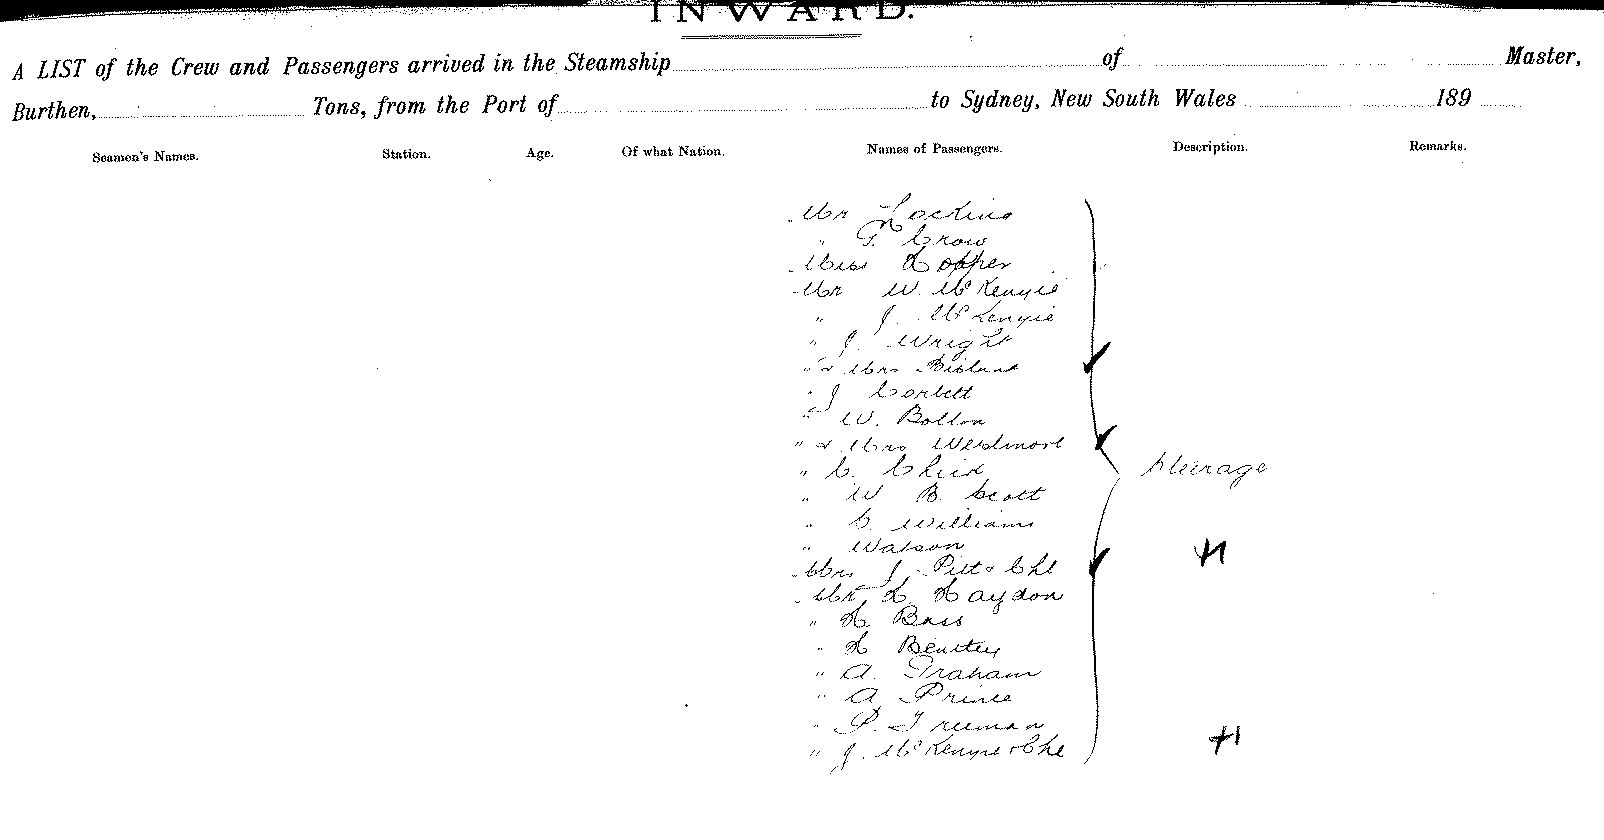 INWARD.
A LIST of the Crew and Passengers arrived in the Steamship of Master,
Burthen, Tons, from the Port of to Sydney, New South Wales 189
Seamen's Names. Station. Age. Of what Nation. Names of Passengers. Description. Remarks.
Mr Locking
" G. Crow
Miss Hopper
Mr W. McKenzie
" J. McKenzie
" J. Wright
" & Mrs
" J Corbett
" W. Bolton
" & Mrs Weedmore
" C. Chick
" W B. Scott
" C. Williams
" Watson
Steerage
Mrs J. Pitt & Chl
Mr H. Haydon
" H. Bass
" H Bentley
" A. Graham
" A. Prince
" P. Treeman
" J. McKenzie & Chl